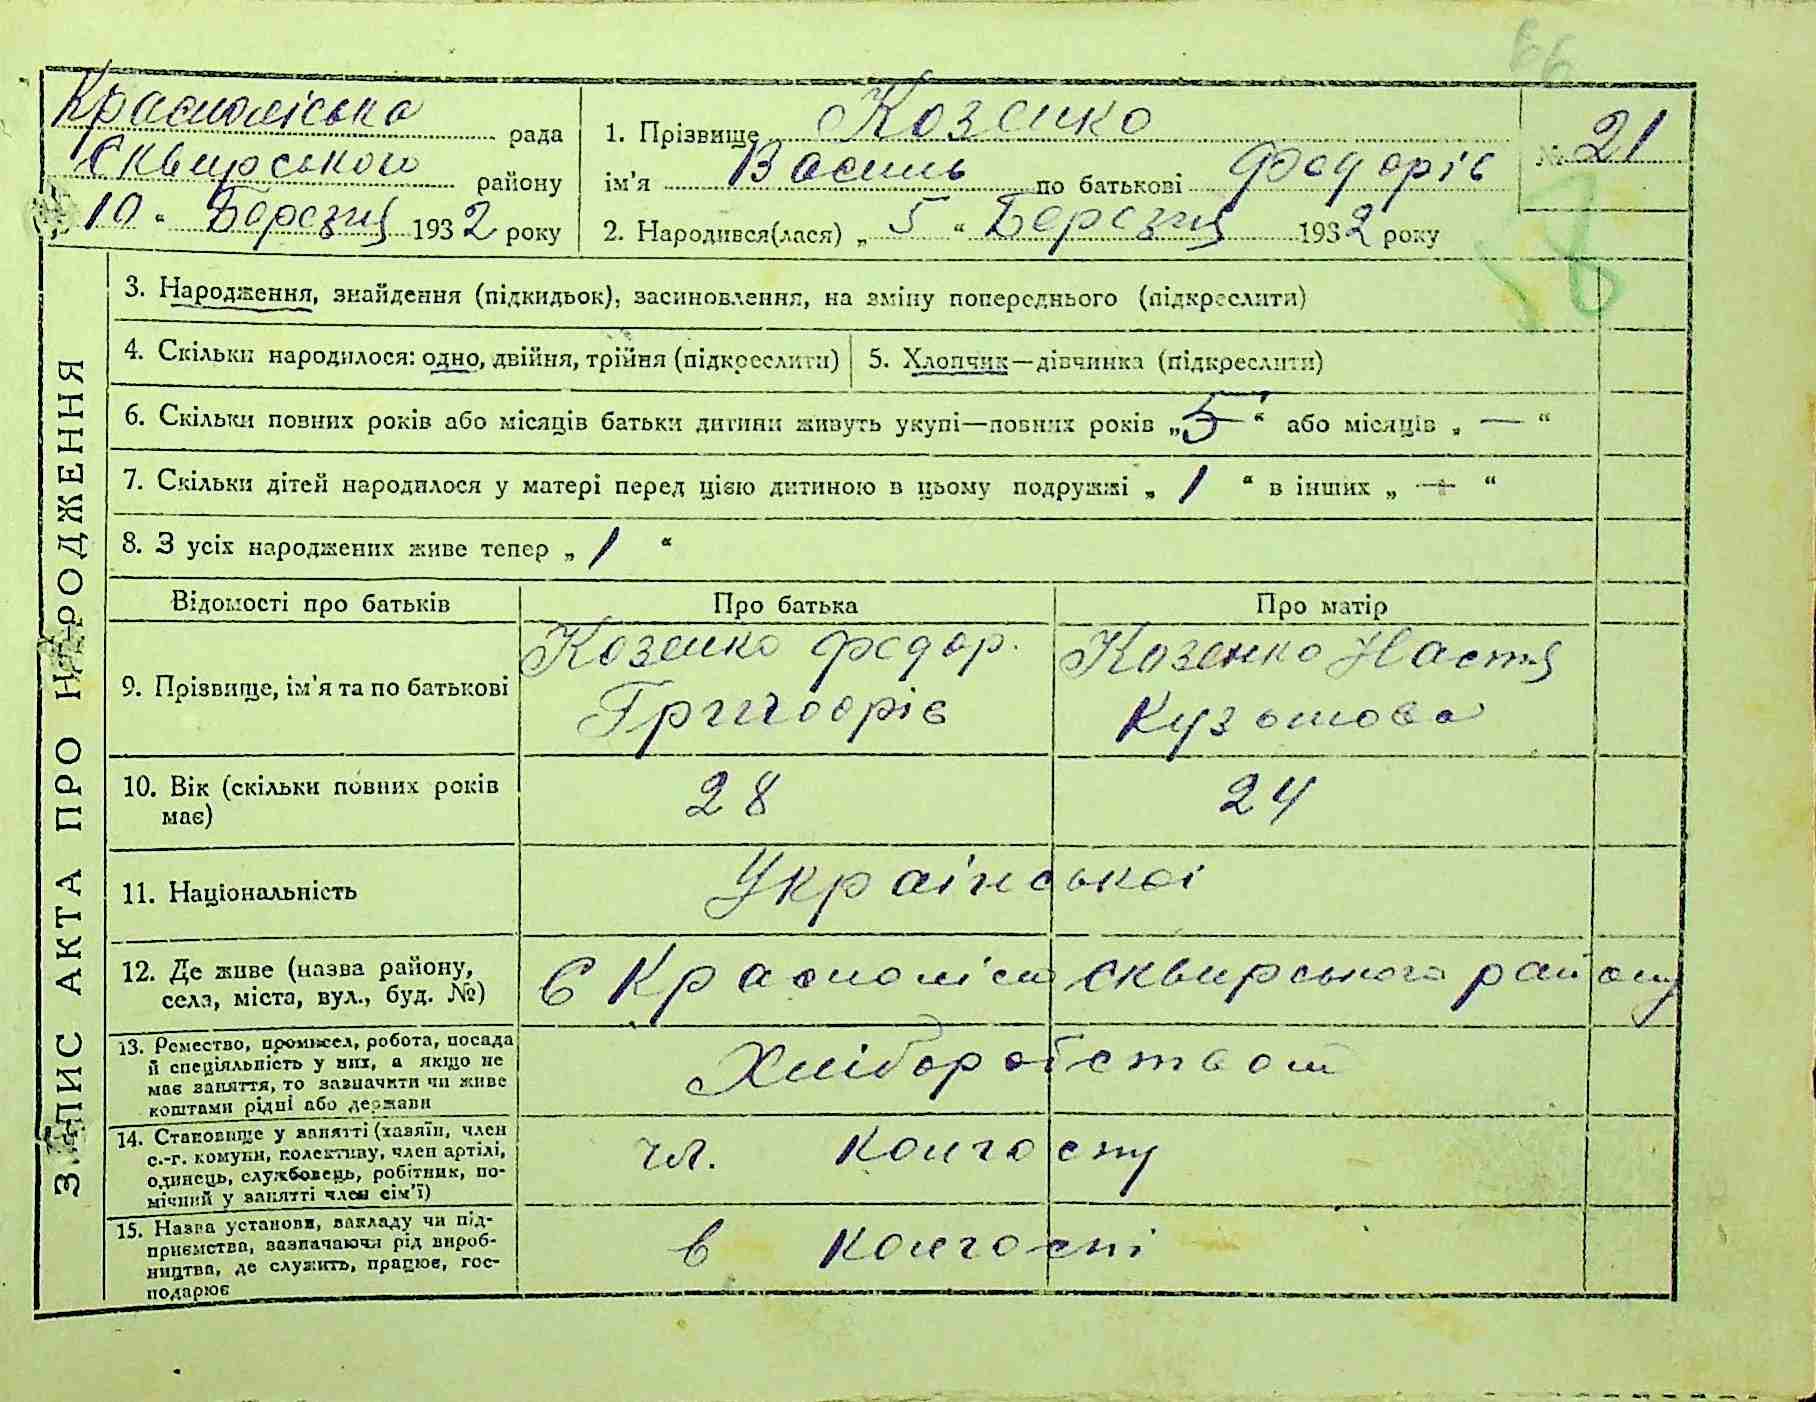 66
Красноліська рада
Сквирського району
"10" Березня 1932 року
1. Прізвище Козенко
ім'я Василь по батькові Федорів
№ 21
2. Народився(лася) „5“ Березня 1932 року
58
ЗАПИС АКТА ПРО НАРОДЖЕННЯ
3. Народження, знайдення (підкидьок), засиновлення, на зміну попереднього (підкреслити)
4. Скільки народилося: одно, двійня, трійня (підкреслити)
5. Хлопчик—дівчинка (підкреслити)
6. Скільки повних років або місяців батьки дитини живуть укупі—повних років „5“ або місяців „—“
7. Скільки дітей народилося у матері перед цією дитиною в цьому подружжі „1“ в інших „—“
8. З усіх народжених живе тепер „1“
Відомості про батьків Про батька Про матір
9. Прізвище, ім'я та по батькові
Козенко Федор.
Григоорів
Козенко Настя
Кузьмова
10. Вік (скільки повних років
має)
28
24
11. Національність
Української
12. Де живе (назва району,
села, міста, вул., буд. №)
С Краснолісы Сквирського району
13. Ремество, промисел, робота, посада
й спеціяльність у них, а якщо не
має заняття, то зазначити чи живе
коштами рідні або держави
Хліборобством
14. Становище у занятті (хазяїн, член
с.-г. комуни, колективу, член артілі,
одинець, службовець, робітник, по-
мічний у занятті член сім'ї)
чл. колгоспу
15. Назва установи, закладу чи під-
приємства, зазначаючи рід вироб-
ництва, де служить, працює, гос-
подарює
в колгоспі